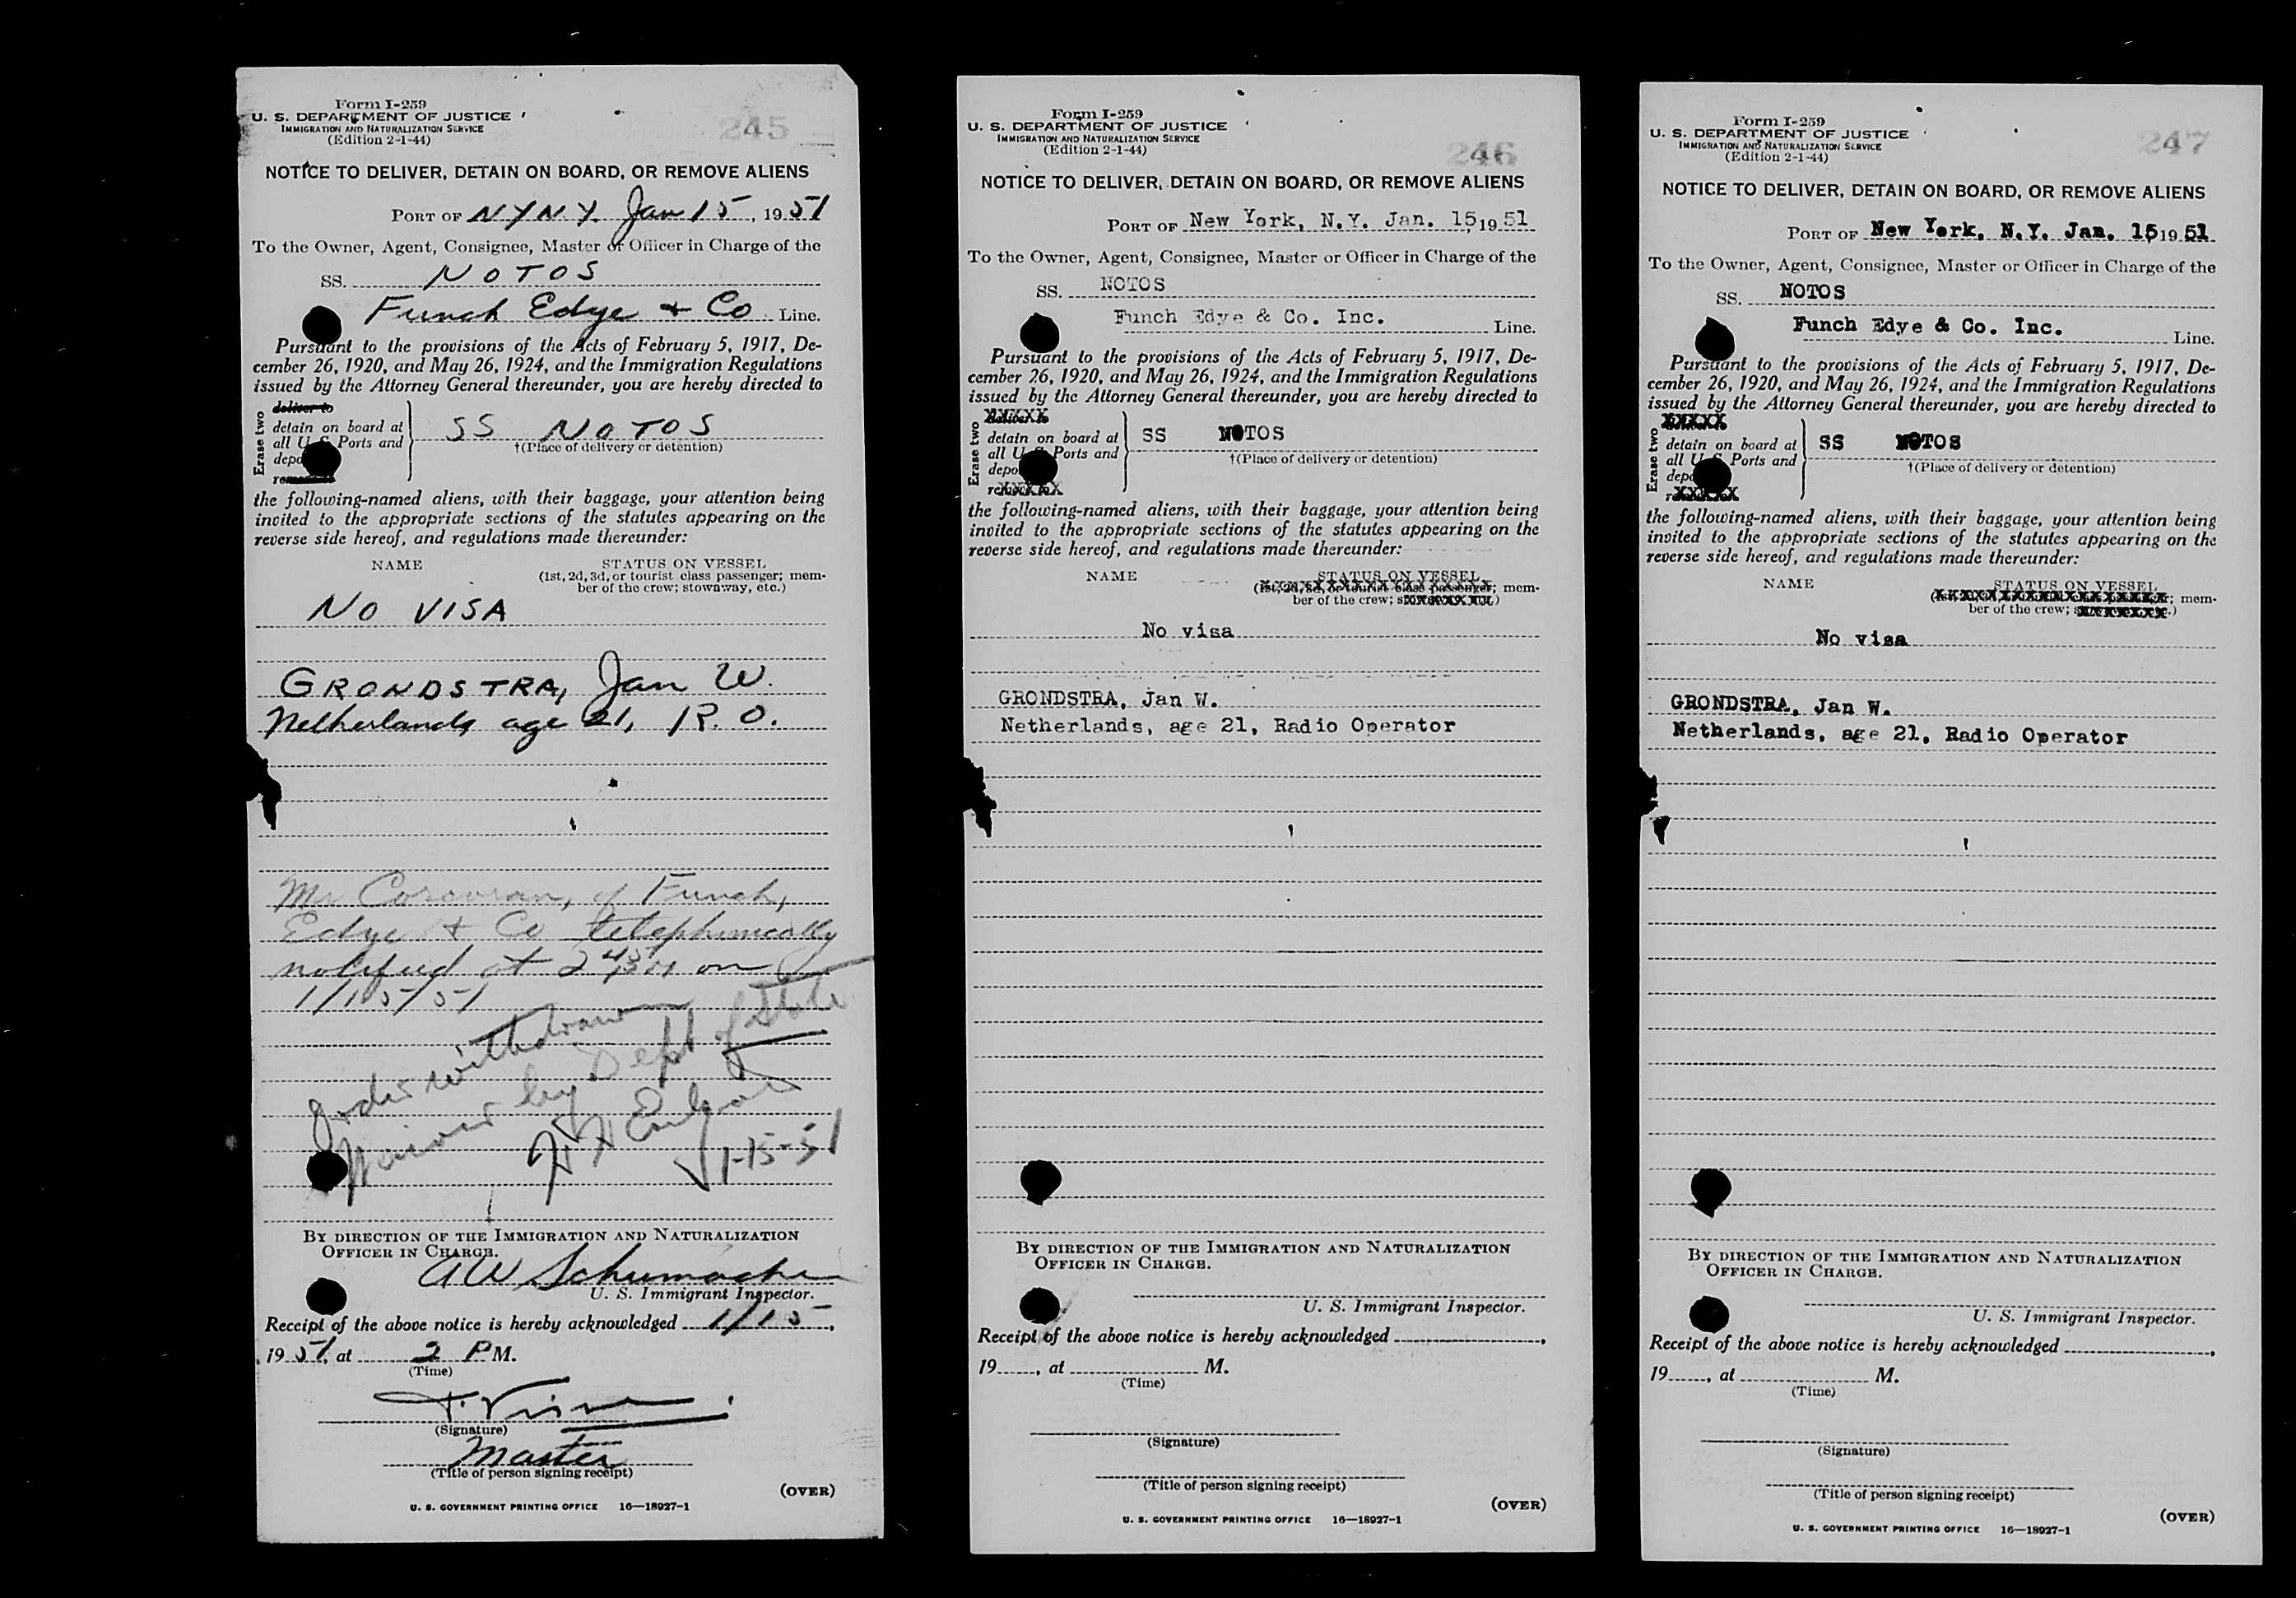 Form I-259
U. S. DEPARTMENT OF JUSTICE
IMMIGRATION AND NATURALIZATION SERVICE
(Edition 2-1-44)
245
NOTICE TO DELIVER, DETAIN ON BOARD, OR REMOVE ALIENS
PORT OF N Y N. Y. Jan 15, 1951
To the Owner, Agent, Consignee, Master or Officer in Charge of the
SS. NOTOS
Funch Edye + Co Line.
Pursuant to the provisions of the Acts of February 5, 1917, De-
cember 26, 1920, and May 26, 1924, and the Immigration Regulations
issued by the Attorney General thereunder, you are hereby directed to
Erase two
deliver to
detain on board at
all U. S. Ports and
SS NOTOS
†(Place of delivery or detention)
the following-named aliens, with their baggage, your attention being
invited to the appropriate sections of the statutes appearing on the
reverse side hereof, and regulations made thereunder:
NAME
STATUS ON VESSEL
(1st, 2d, 3d, or tourist class passenger; mem-
ber of the crew; stowaway, etc.)
NO VISA
GRONDSTRA, Jan W.
Netherlands age 21, R. O.
Mr Corcoran, of Funch,
Edye + Co telephonically
notified at 2 45 PM on
1/15/51
order withdrawn
Waiver by Dept of State
1-15-51
BY DIRECTION OF THE IMMIGRATION AND NATURALIZATION
OFFICER IN CHARGE.
A W Schumacher
U. S. Immigrant Inspector.
Receipt of the above notice is hereby acknowledged 1/15,
1951, at 2 PM.
(Time)
(Signature)
Master
(Title of person signing receipt)
(OVER)
U. S. GOVERNMENT PRINTING OFFICE 16—18927-1
Form I-259
U. S. DEPARTMENT OF JUSTICE
IMMIGRATION AND NATURALIZATION SERVICE
(Edition 2-1-44)
246
NOTICE TO DELIVER, DETAIN ON BOARD, OR REMOVE ALIENS
PORT OF New York, N.Y. Jan. 15, 1951
To the Owner, Agent, Consignee, Master or Officer in Charge of the
SS. NOTOS
Funch Edye & Co. Inc. Line.
Pursuant to the provisions of the Acts of February 5, 1917, De-
cember 26, 1920, and May 26, 1924, and the Immigration Regulations
issued by the Attorney General thereunder, you are hereby directed to
Erase two
detain on board at
all U. S. Ports and
SS NOTOS
†(Place of delivery or detention)
the following-named aliens, with their baggage, your attention being
invited to the appropriate sections of the statutes appearing on the
reverse side hereof, and regulations made thereunder:
NAME
STATUS ON VESSEL
(1st, 2d, 3d, or tourist class passenger; mem-
ber of the crew;
No visa
GRONDSTRA, Jan W.
Netherlands, age 21, Radio Operator
BY DIRECTION OF THE IMMIGRATION AND NATURALIZATION
OFFICER IN CHARGE.
U. S. Immigrant Inspector.
Receipt of the above notice is hereby acknowledged ,
19 , at M.
(Time)
(Signature)
(Title of person signing receipt)
(OVER)
U. S. GOVERNMENT PRINTING OFFICE 16—18927-1
Form I-259
U. S. DEPARTMENT OF JUSTICE
IMMIGRATION AND NATURALIZATION SERVICE
(Edition 2-1-44)
247
NOTICE TO DELIVER, DETAIN ON BOARD, OR REMOVE ALIENS
PORT OF New York, N.Y. Jan. 15, 1951
To the Owner, Agent, Consignee, Master or Officer in Charge of the
SS. NOTOS
Funch Edye & Co. Inc. Line.
Pursuant to the provisions of the Acts of February 5, 1917, De-
cember 26, 1920, and May 26, 1924, and the Immigration Regulations
issued by the Attorney General thereunder, you are hereby directed to
Erase two
detain on board at
all U. S. Ports and
SS NOTOS
†(Place of delivery or detention)
the following-named aliens, with their baggage, your attention being
invited to the appropriate sections of the statutes appearing on the
reverse side hereof, and regulations made thereunder:
NAME
STATUS ON VESSEL
mem-
ber of the crew;
No visa
GRONDSTRA, Jan W.
Netherlands, age 21, Radio Operator
BY DIRECTION OF THE IMMIGRATION AND NATURALIZATION
OFFICER IN CHARGE.
U. S. Immigrant Inspector.
Receipt of the above notice is hereby acknowledged ,
19 , at M.
(Time)
(Signature)
(Title of person signing receipt)
(OVER)
U. S. GOVERNMENT PRINTING OFFICE 16—18927-1